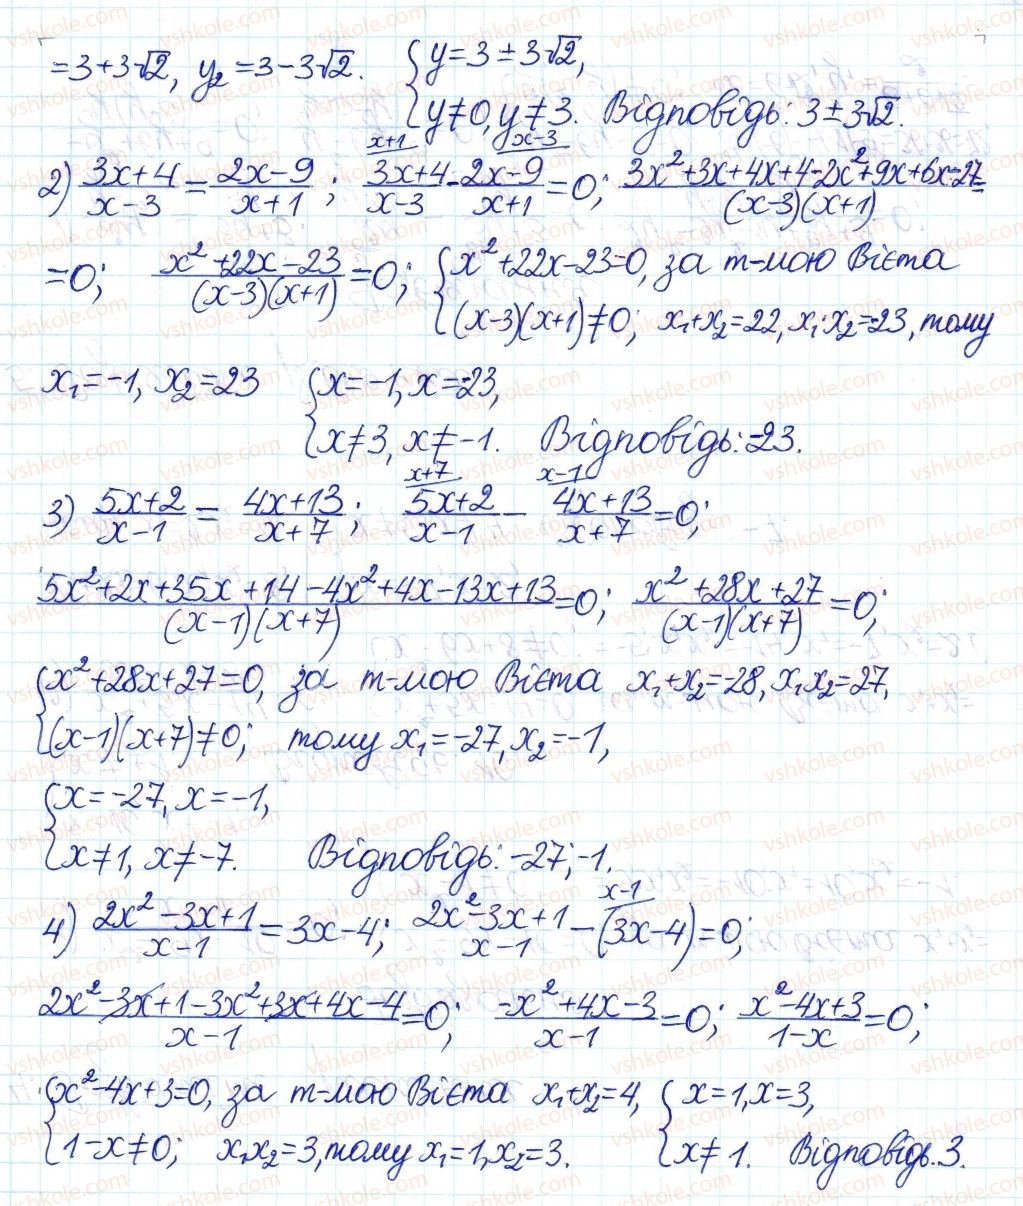 = 3 + 3√2, y₂ = 3 − 3√2. { y = 3 ± 3√2,
y ≠ 0, y ≠ 3. Відповідь: 3 ± 3√2.
x+1 x−3
2) (3x+4)/(x−3) = (2x−9)/(x+1); (3x+4)/(x−3) − (2x−9)/(x+1) = 0; (3x²+3x+4x+4−2x²+9x+6x−27)/((x−3)(x+1)) =
= 0; (x²+22x−23)/((x−3)(x+1)) = 0; { x²+22x−23=0, за т-мою Вієта
(x−3)(x+1)≠0; x₁+x₂=22, x₁·x₂=−23, тому
x₁=−1, x₂=23 { x=−1, x=−23,
x≠3, x≠−1. Відповідь: −23.
x+7 x−1
3) (5x+2)/(x−1) = (4x+13)/(x+7); (5x+2)/(x−1) − (4x+13)/(x+7) = 0;
(5x²+2x+35x+14−4x²+4x−13x+13)/((x−1)(x+7)) = 0; (x²+28x+27)/((x−1)(x+7)) = 0;
{ x²+28x+27=0, за т-мою Вієта x₁+x₂=−28, x₁x₂=27,
(x−1)(x+7)≠0; тому x₁=−27, x₂=−1,
{ x=−27, x=−1,
x≠1, x≠−7. Відповідь: −27; −1.
x−1
4) (2x²−3x+1)/(x−1) = 3x−4; (2x²−3x+1)/(x−1) − (3x−4) = 0;
(2x²−3x+1−3x²+3x+4x−4)/(x−1) = 0; (−x²+4x−3)/(x−1) = 0; (x²−4x+3)/(1−x) = 0;
{ x²−4x+3=0, за т-мою Вієта x₁+x₂=4, { x=1, x=3,
1−x≠0; x₁x₂=3, тому x₁=1, x₂=3. x≠1. Відповідь. 3.